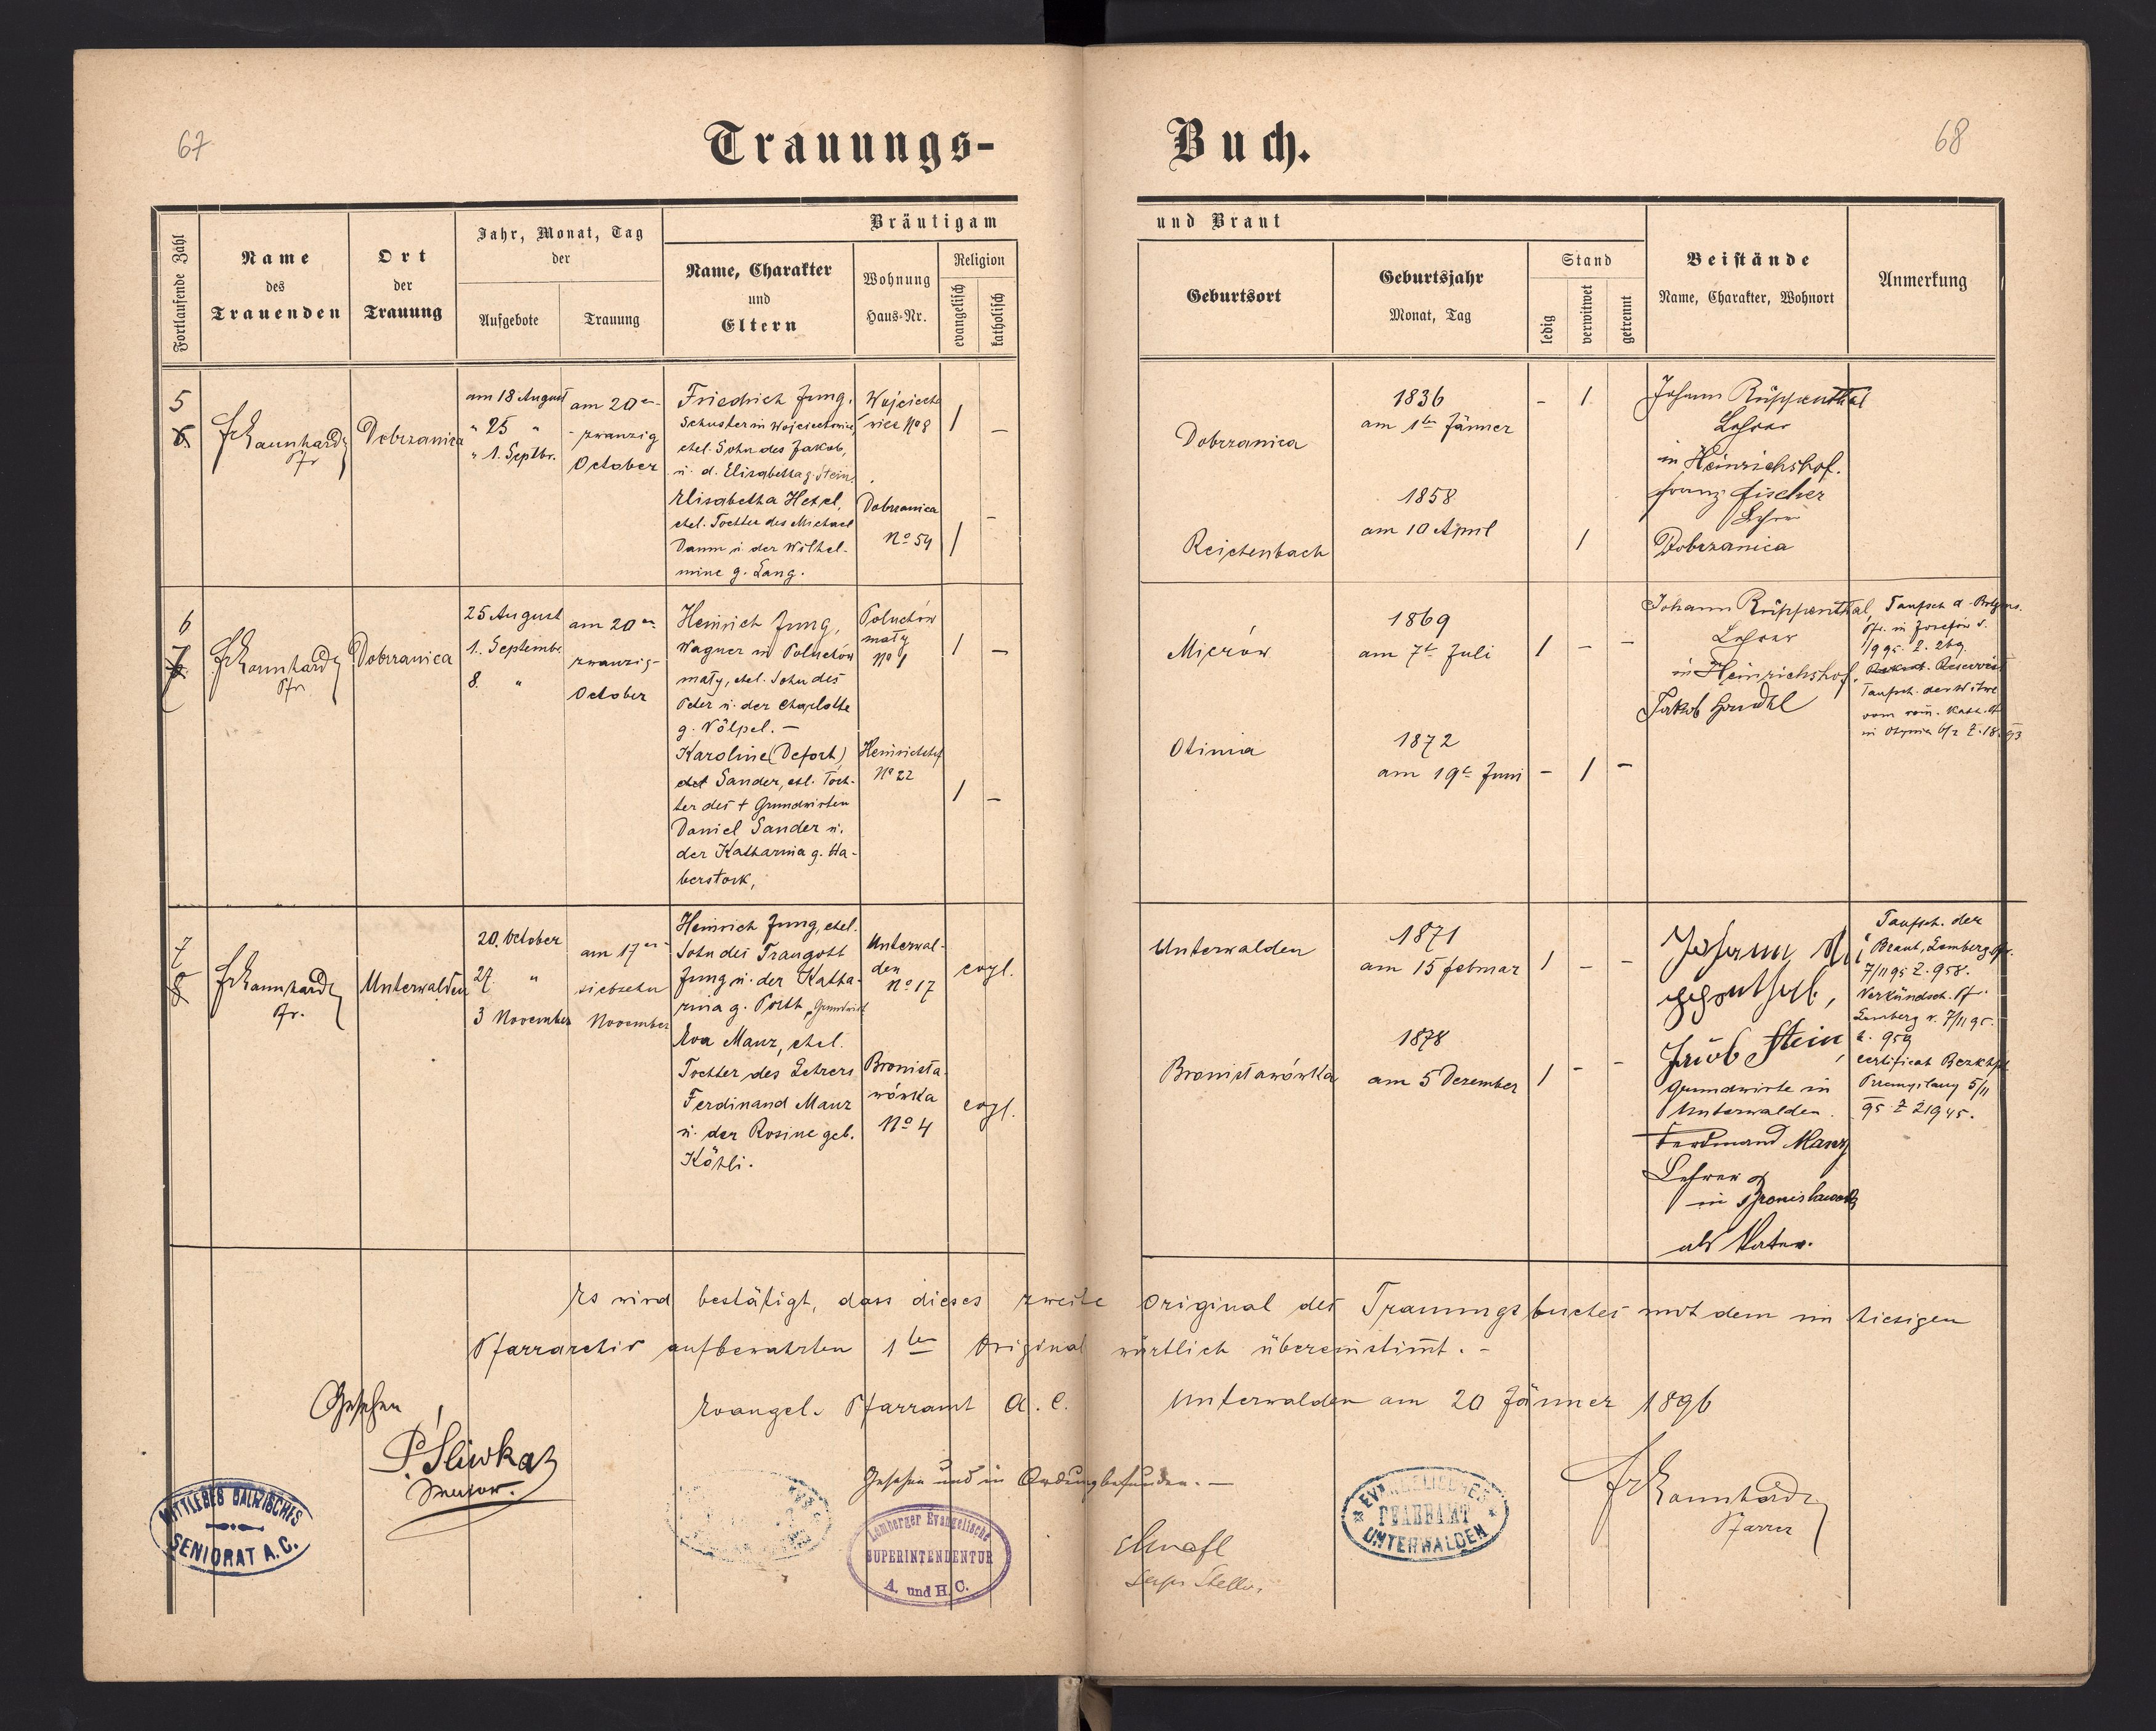 67
Trauungs-
Buch.
68
Fortlaufende Zahl
Name
des
Trauenden
Ort
der
Trauung
Jahr, Monat, Tag
der
Aufgebote
Trauung
Bräutigam
Name, Charakter
und
Eltern
Wohnung
Haus-Nr.
Religion
evangelisch
katholisch
und Braut
Geburtsort
Geburtsjahr
Monat, Tag
Stand
ledig
verwitwet
getrennt
Beistände
Name, Charakter, Wohnort
Anmerkung
5
6
Pfr
Dobrzanica
am 18 August
" 25 "
" 1. Septbr.
am 20ten
zwanzig
October
Friedrich Jung,
Schuster in Wojciechowice,
ehel. Sohn des Jakob,
u. d. Elisabetha g. Stein.
Elisabetha Hetzel,
ehel. Tochter des Michael
Damm u. der Wilhel-
mine g. Lang.
Wojciecho
wice No 8
Dobrzanica
No 54
1 -
1 -
Dobrzanica
Reichenbach
1836
am 1ten Jänner
1858
am 10 April
- 1
1
Johann Rüppenthal
Lehrer
in Heinrichshof.
Franz Fischer
Lehrer
Dobrzanica
6
7
Pfr.
Dobrzanica
25 August
1. September
8. "
am 20ten
zwanzig-
October
Heinrich Jung,
Wagner in Poluchów
mały, ehel. Sohn des
Peter u. der Charlotte
g. Völpel. -
Karoline (Defort)
Sander, ehl. Toch-
ter des + Grundwirten
Daniel Sander u.
der Katharina g. Ha-
berstock,
Poluchów
mały
No 1
Heinrichshof
No 22
1 -
1 -
Mierów
Otinia
1869
am 7t Juli
1872
am 19t Juni
1 - -
- 1 -
Johann Rüppenthal,
Lehrer
in Heinrichshof,
Jakob
Taufsch. d.
Pfr. in Josefów v.
Z. 269.
Taufsch. der Witwe
vom röm. kath. Pf
7
8
Pfr.
Unterwalden
20. October
27. "
3 November
am 17ten
siebzehn
November
Heinrich Jung, ehel.
Sohn des Traugott
Jung u. der Katha-
rina g. Poth, Grundwirt
Eva Manz, ehel.
Tochter des Lehrers
Ferdinand Manz
u. der Rosine geb.
Köhli.
Unterwal-
den
No 17
Bronisła-
wówka
No 4
evgl.
evgl.
Unterwalden
Bronisławówka
1871
am 15 Februar
1878
am 5 Dezember
1 - -
1 - -
Johann
Jakob Stein,
Grundwirte in
Unterwalden.
Ferdinand Manz
Lehrer
in Bronislawowka
als Vater.
Taufsch. der
Braut, Lemberg Pfr.
7/11 95 Z. 958.
Verkündsch. Pf.
Lemberg v. 7/11 95.
Z. 959
Certificat Bezkhpt
Przemyslany 5/11
95 Z 21945.
Es wird bestätigt, dass dieses zweite Original des Trauungsbuches mit dem im hiesigen
Pfarrarchiv aufbewahrten 1ten Original wörtlich übereinstimt. -
Evangel. Pfarramt A. C. Unterwalden am 20 Jänner 1896
Gesehen
P. Sliwka
Senior.
Gesehen und in Ordnung befunden. -
Pfarrer
MITTLERES GALIZISCHES
SENIORAT A.C.
Lemberger Evangelische
SUPERINTENDENTUR
A. und H. C.
EVANGELISCHES
PFARRAMT
UNTERWALDEN